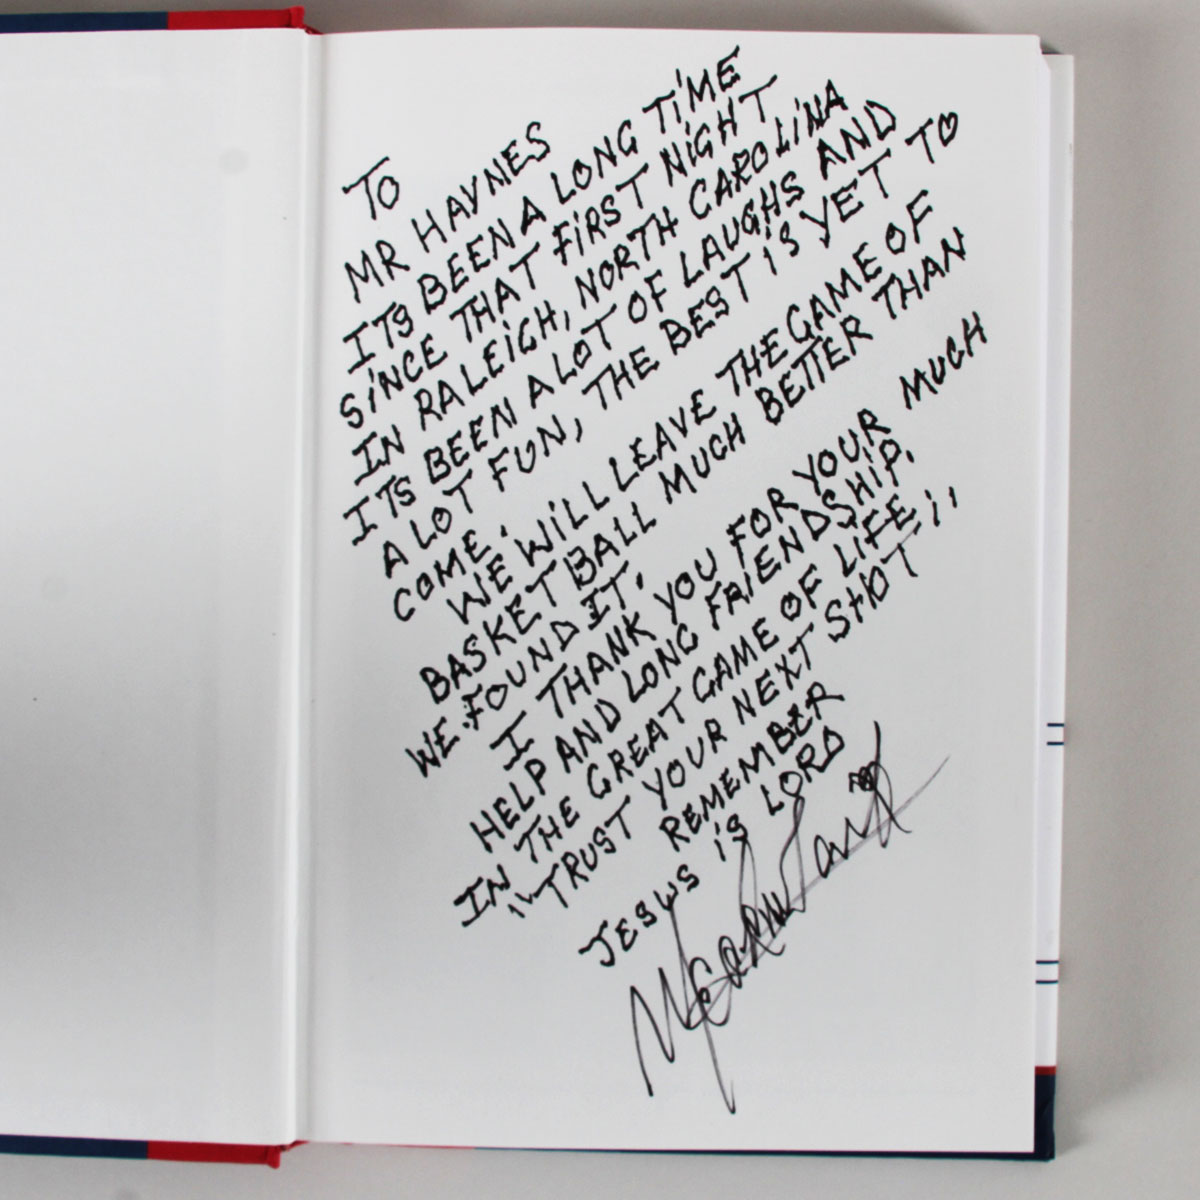 TO
MR HAYNES
ITS BEEN A LONG TIME
SINCE THAT FIRST NIGHT
IN RALEIGH, NORTH CAROLINA
ITS BEEN A LOT OF LAUGHS AND
A LOT FUN, THE BEST IS YET TO
COME.
WE WILL LEAVE THE GAME OF
BASKETBALL MUCH BETTER THAN
WE FOUND IT.
I THANK YOU FOR YOUR MUCH
HELP AND LONG FRIENDSHIP.
IN THE GREAT GAME OF LIFE;,
"TRUST YOUR NEXT SHOT
REMEMBER
JESUS IS LORD